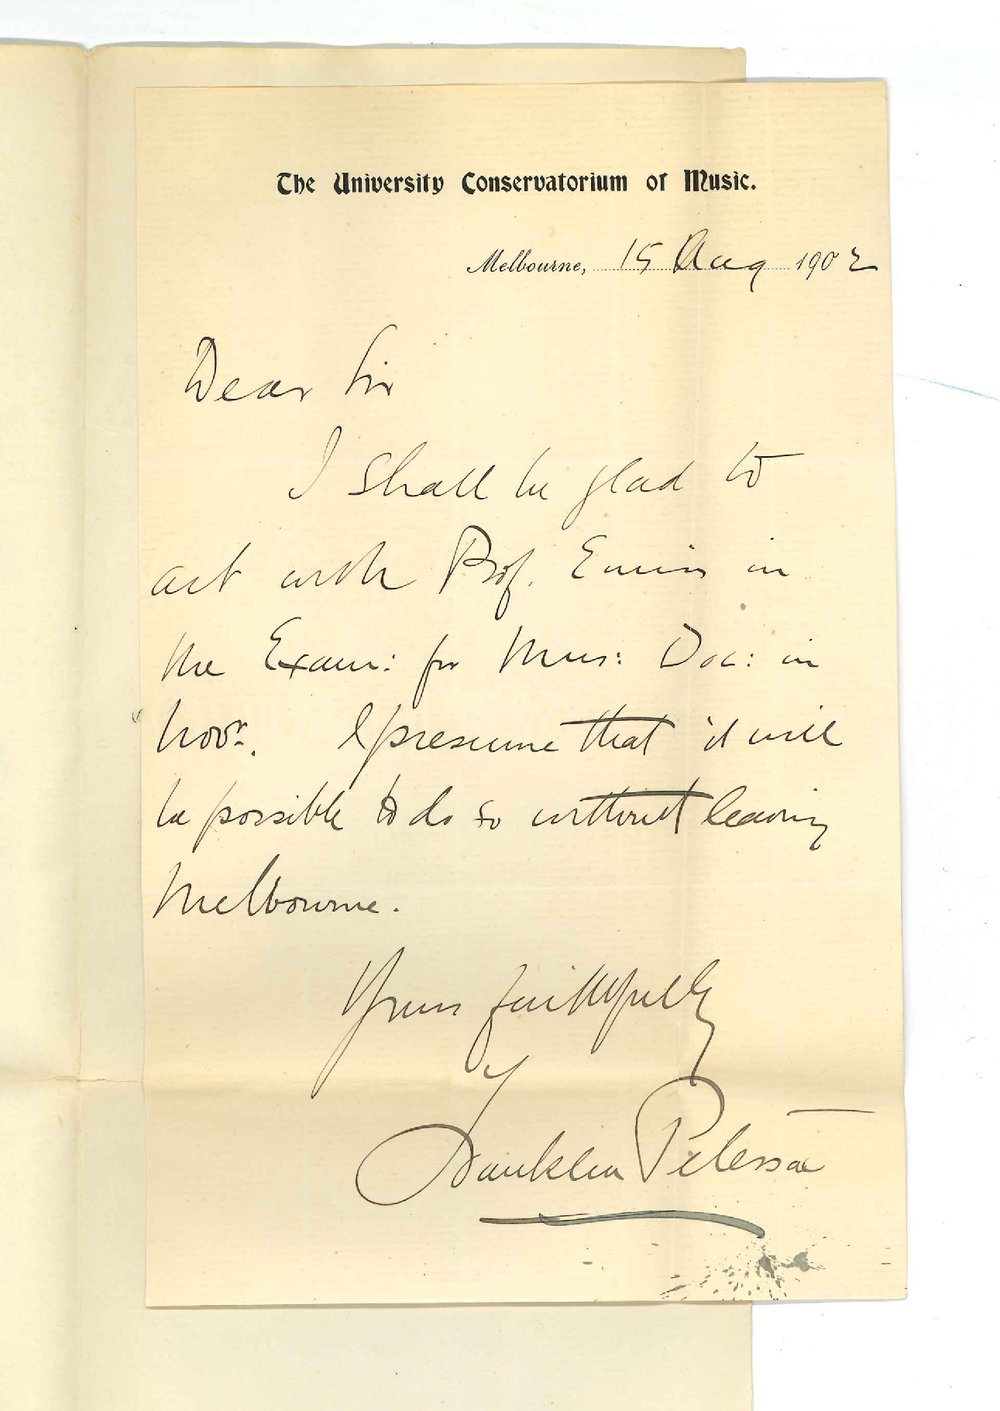 The University Conservatorium of Music.
Melbourne, 15 Aug 1902
Dear Sir
I shall be glad to
act with Prof. Ennis in
the Exam: for Mus: Doc: in
Novr. I presume that it will
be possible to do so without leaving
Melbourne.
Yours faithfully
Franklin Peterson